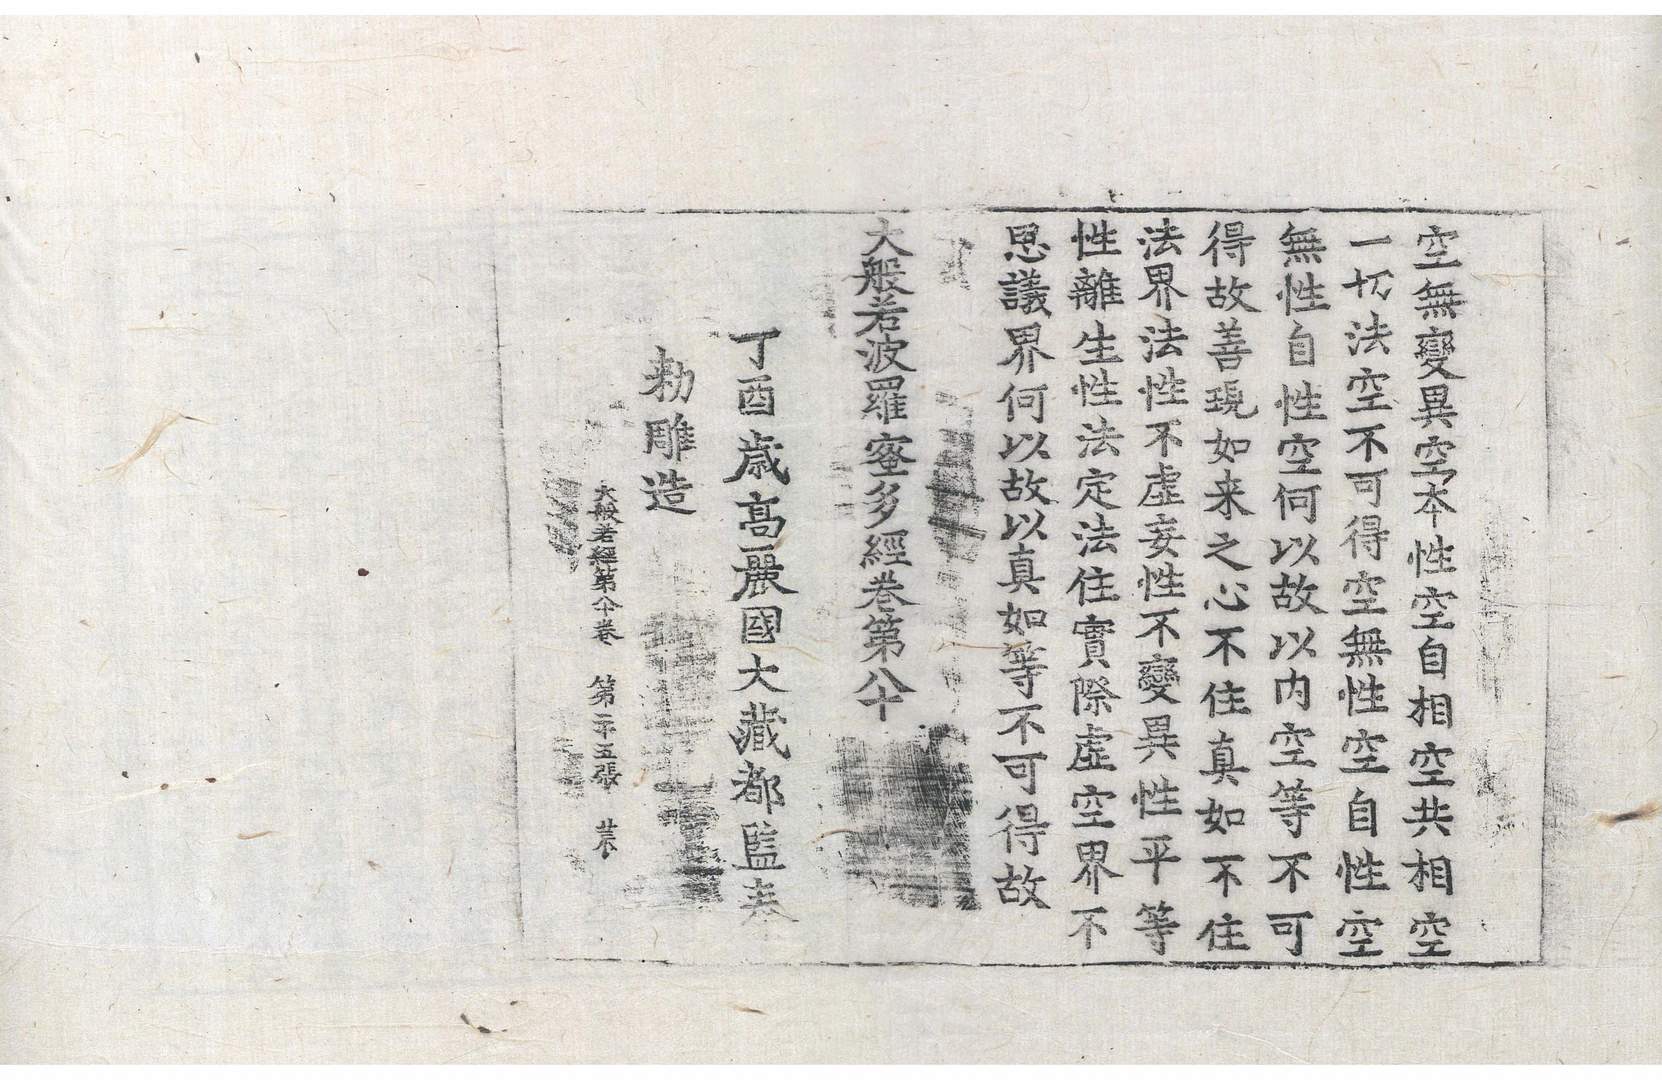 空無變異空本性空自相空共相空
一切法空不可得空無性空自性空
無性自性空何以故以内空等不可
得故善現如来之心不住真如不住
法界法性不虛妄性不變異性平等
性離生性法定法住實際虛空界不
思議界何以故以真如等不可得故
大般若波羅蜜多經卷第八十
丁酉歲高麗國大藏都監奉
勅雕造
大般若經第八十卷 第二十五張